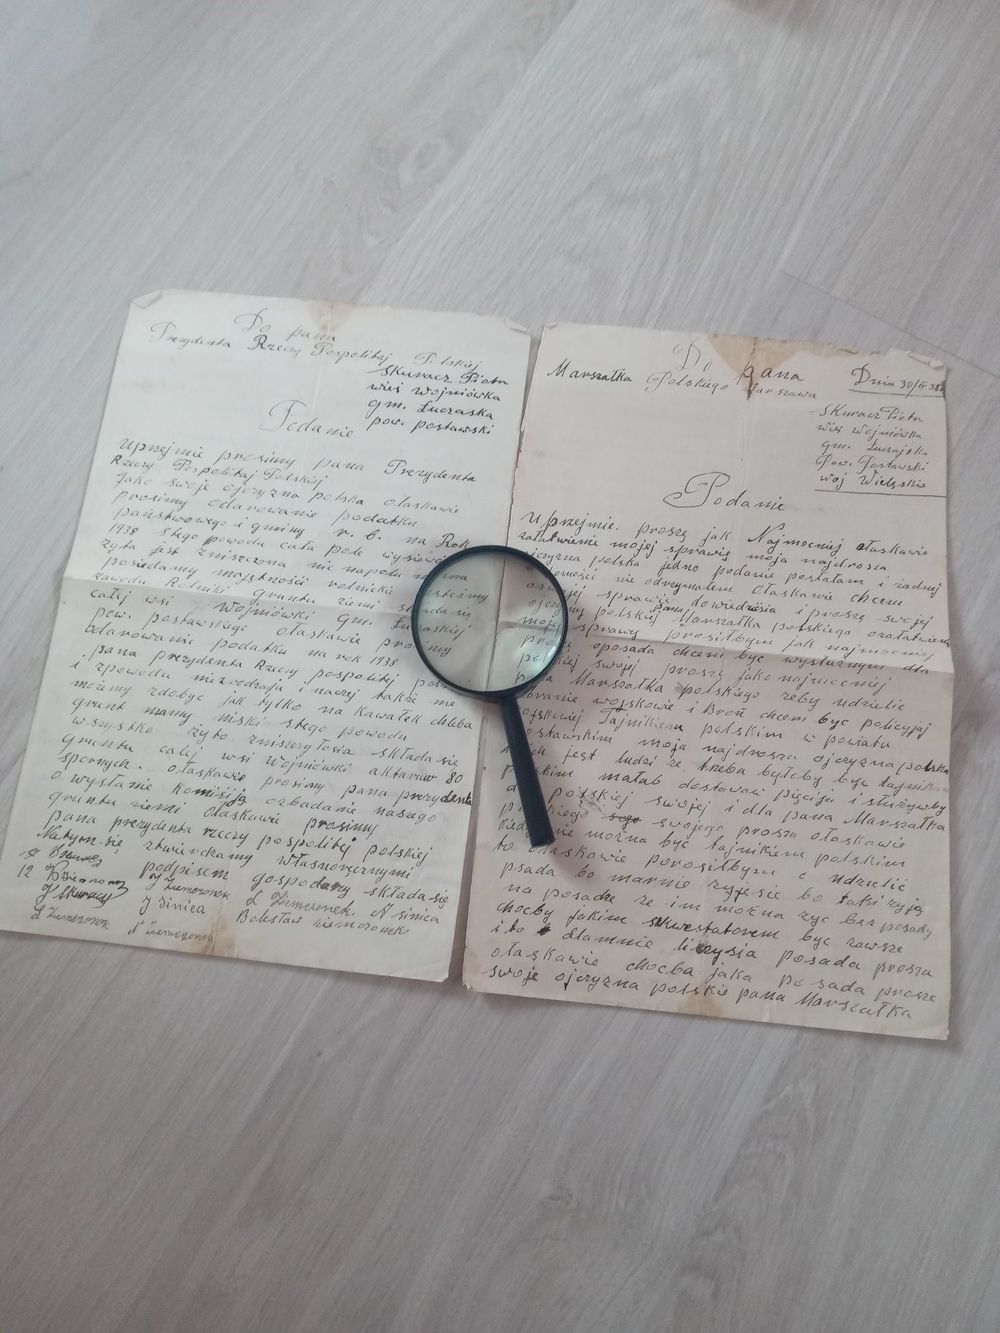 Do pana
Prezydenta Rzeczy Pospolitej Polskiej
Skuracz Piotr
wieś Wojniówka
gm. Łuczaska
pow. postawski
Podanie
Uprzejmie prosimy pana Prezydenta
Rzeczy Pospolitej Polskiej
jako swoje ojczyzna polska ołaskawie
prosimy odarowanie podatku
państwowego i gminy r. b. na Rok
1938 stego powodu cała pole
żyta jest zniszczona nie napola
posiadamy majętności rolnicki
zawodu Rolniki gruntu ziemi składa się
całej wsi Wojniówki gm.
pow. postawskiego ołaskawie prosimy
odarowanie podatku na rok 1938
pana prezydenta Rzeczy pospolitej
i zpowodu niezrodzaju i naczej także nie
możemy zdobyć jak tylko na kawałek chleba
grunt mamy niski stego powodu
wszystko żyto zniszczyłosia składa się
gruntu całej wsi Wojniówki aktarów 80
spornych. ołaskawie prosimy pana prezydenta
o wysłanie komisji ozbadanie naszego
gruntu ziemi ołaskawie prosimy
pana prezydenta rzeczy pospolitej polskiej
Natym się zkwierdzamy własnoręcznymi
podpisem gospodarzy składa się
12 J Ziemczonok L Ziemczonek. A Sinica
J Skuracz J Sinica Bolesław Ziemczonek
L Ziemczonek A Ziemczonok
Do pana
Marszałka Polskiego Warszawa
Dnia 30/
Skuracz Piotr
wieś Wojniówka
gm. Łuczajska
pow. Postawski
woj Wielęskie
Podanie
Uprzejmie. proszę jak Najmocniej ołaskawie
załatwienie mojej sprawie moja najdrosza
ojczyzna polska jedno podanie posłałam i żadnej
nie odrzymałem ołaskawie chcem
swojej sprawie dowiedzisia i proszę swojej
polskiej pana Marszałka polskiego ozałatwienie
sprawy prosiłbym jak najmocniej
oposada chcem być wysłużnym dla
swojej proszę jako najmocniej
Marszałka polskiego żeby udzielic
wojskowie i Broń chcem być policyjaj
Tajnikiem polskim w powiatu
postawskim moja najdrosza ojczyzna polska
jest ludzi że trzeba byłoby być tajnikiem
polskim małab dostawać pięcija i służywby
polskiej swojej i dla pana Marszałka
polskiego swojego prosza ołaskawie
można być tajnikiem polskim
to ołaskawie porosiłbym o udzielic
psada bo marnie żyje sic bo takiżyja
na posadze że im można żyć bez posady
choćby jakim skwestatorem być zawsze
i bo dlamnie posada prosza
ołaskawie chocba jaka posada prosze
swoje ojczyzna polskie pana Marszałka